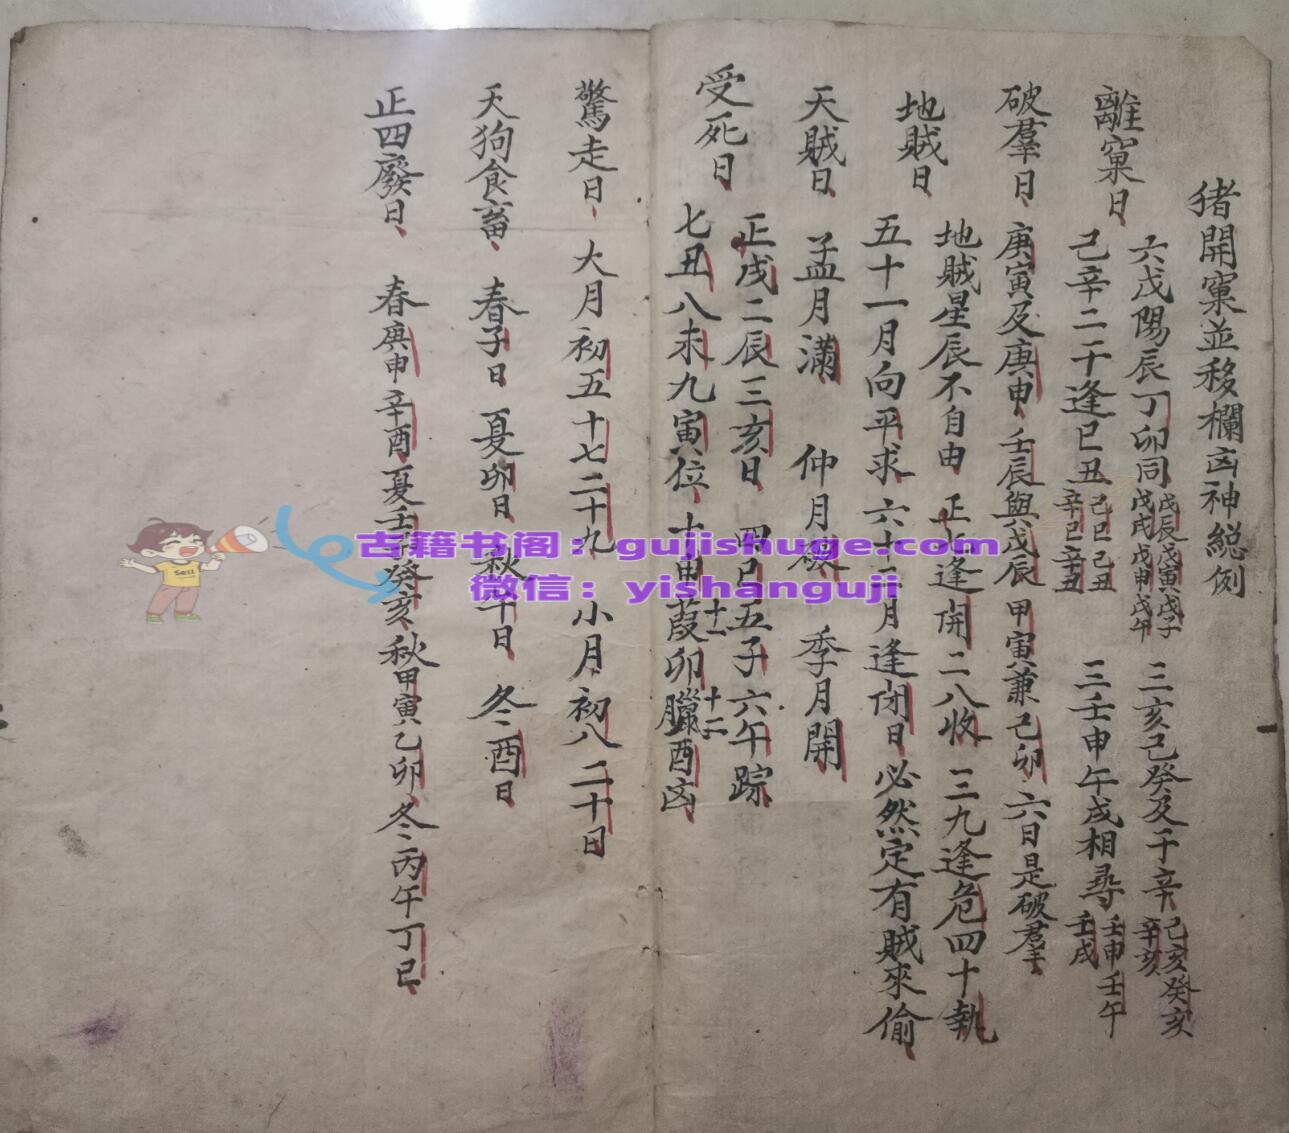 猪開窠並移欄凶神総例
離窠日
六戊陽辰丁卯同
戊辰戊寅戊子
戊戌戊申戊午
三亥己癸及干辛
己亥癸亥
辛亥
己辛二干逢巳丑
己巳己丑
辛巳辛丑
三壬申午戌相尋
壬申壬午
壬戌
破羣日
庚寅及庚申壬辰與戊辰甲寅兼己卯六日是破羣
地賊日
地賊星辰不自由正七逢開二八收三九逢危四十執
五十一月向平求六十二月逢闭日必然定有賊來偷
天賊日
孟月滿 仲月破 季月開
受死日
正戌二辰三亥日四巳五子六午踪
七丑八未九寅位十申葭十一卯臘十二酉凶
驚走日
大月初五十七二十九 小月初八二十日
天狗食畜
春子日 夏卯日 秋午日 冬酉日
正四廢日
春庚申辛酉夏壬子癸亥秋甲寅乙卯冬丙午丁巳
古籍书阁：gujishuge.com
微信：yishanguji
Sell